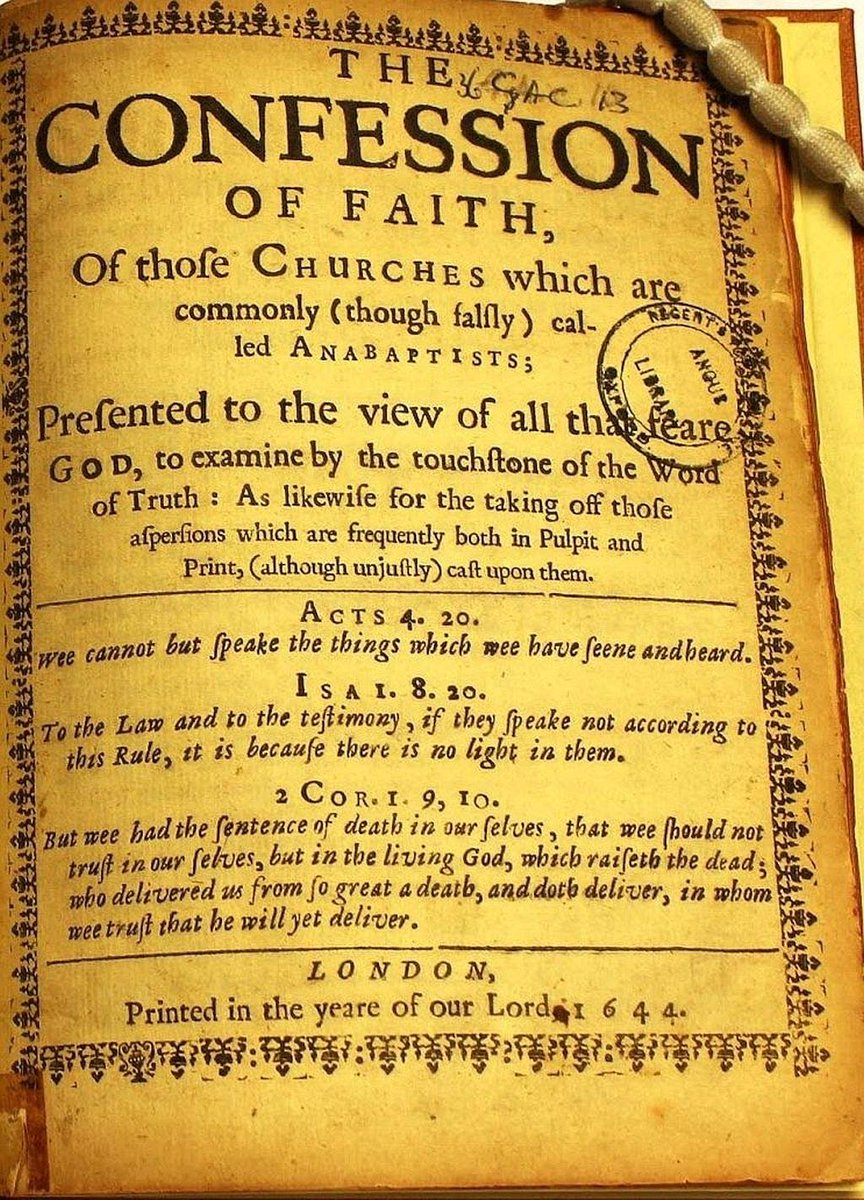 THE
36 G AC 113
CONFESSION
OF FAITH,
Of thoſe CHURCHES which are
commonly (though falſly) cal-
led ANABAPTISTS;
REGENT'S
ANGUS
LIBRARY
OXFORD
Preſented to the view of all that feare
GOD, to examine by the touchſtone of the Word
of Truth: As likewiſe for the taking off thoſe
aſperſions which are frequently both in Pulpit and
Print, (although unjuſtly) caſt upon them.
ACTS 4. 20.
Wee cannot but ſpeake the things which wee have ſeene and heard.
ISAI. 8. 20.
To the Law and to the teſtimony, if they ſpeake not according to
this Rule, it is becauſe there is no light in them.
2 COR. 1. 9, 10.
But wee had the ſentence of death in our ſelves, that wee ſhould not
truſt in our ſelves, but in the living God, which raiſeth the dead;
who delivered us from ſo great a death, and doth deliver, in whom
wee truſt that he will yet deliver.
LONDON,
Printed in the yeare of our Lord, 1644.